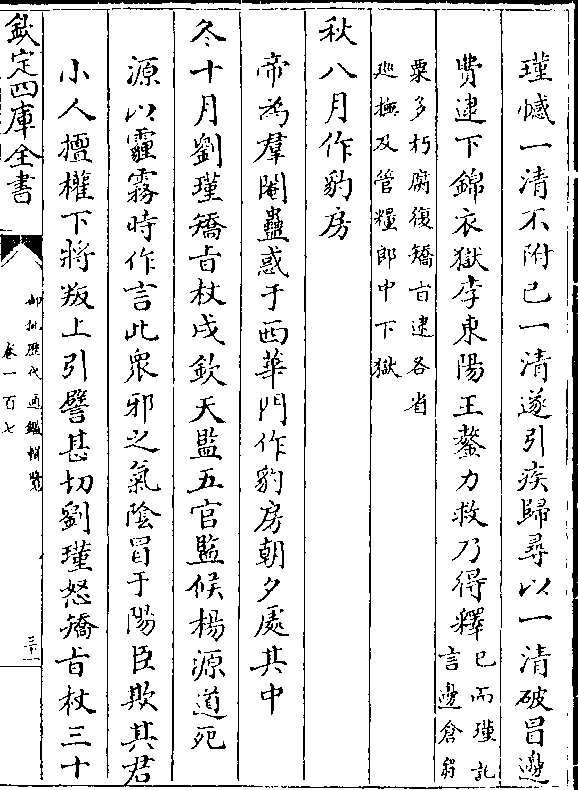 瑾憾一清不附己一清遂引疾歸尋以一清破冒邊
費逮下錦衣獄李東陽王鏊力救乃得釋
已而瑾託
言邊倉芻
粟多朽腐復矯旨逮各省
廵撫及管糧郎中下獄
秋八月作豹房
帝為羣閹蠱惑于西華門作豹房朝夕處其中
冬十月劉瑾矯旨杖戍欽天監五官監候楊源道死
源以霾霧時作言此衆邪之氣陰冒于陽臣欺其君
小人擅權下將叛上引譬甚切劉瑾怒矯旨杖三十
欽定四庫全書
御批歷代通鑑輯覽
卷一百七